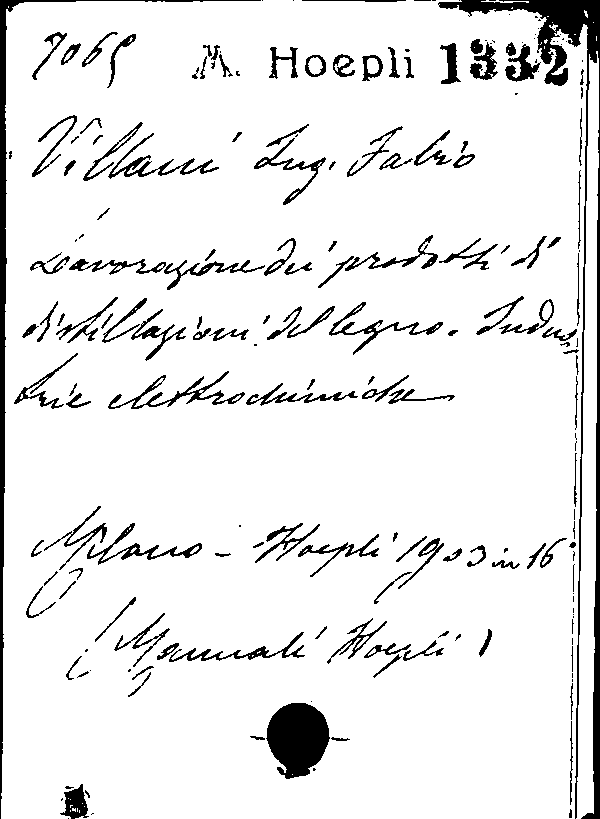 7065 M. Hoepli 1332
Villani Ing. Fabio
Lavorazione dei prodotti di
distillazioni del legno. Indus-
trie elettrochimiche
Milano - Hoepli 1903 in 16°
(Manuali Hoepli)